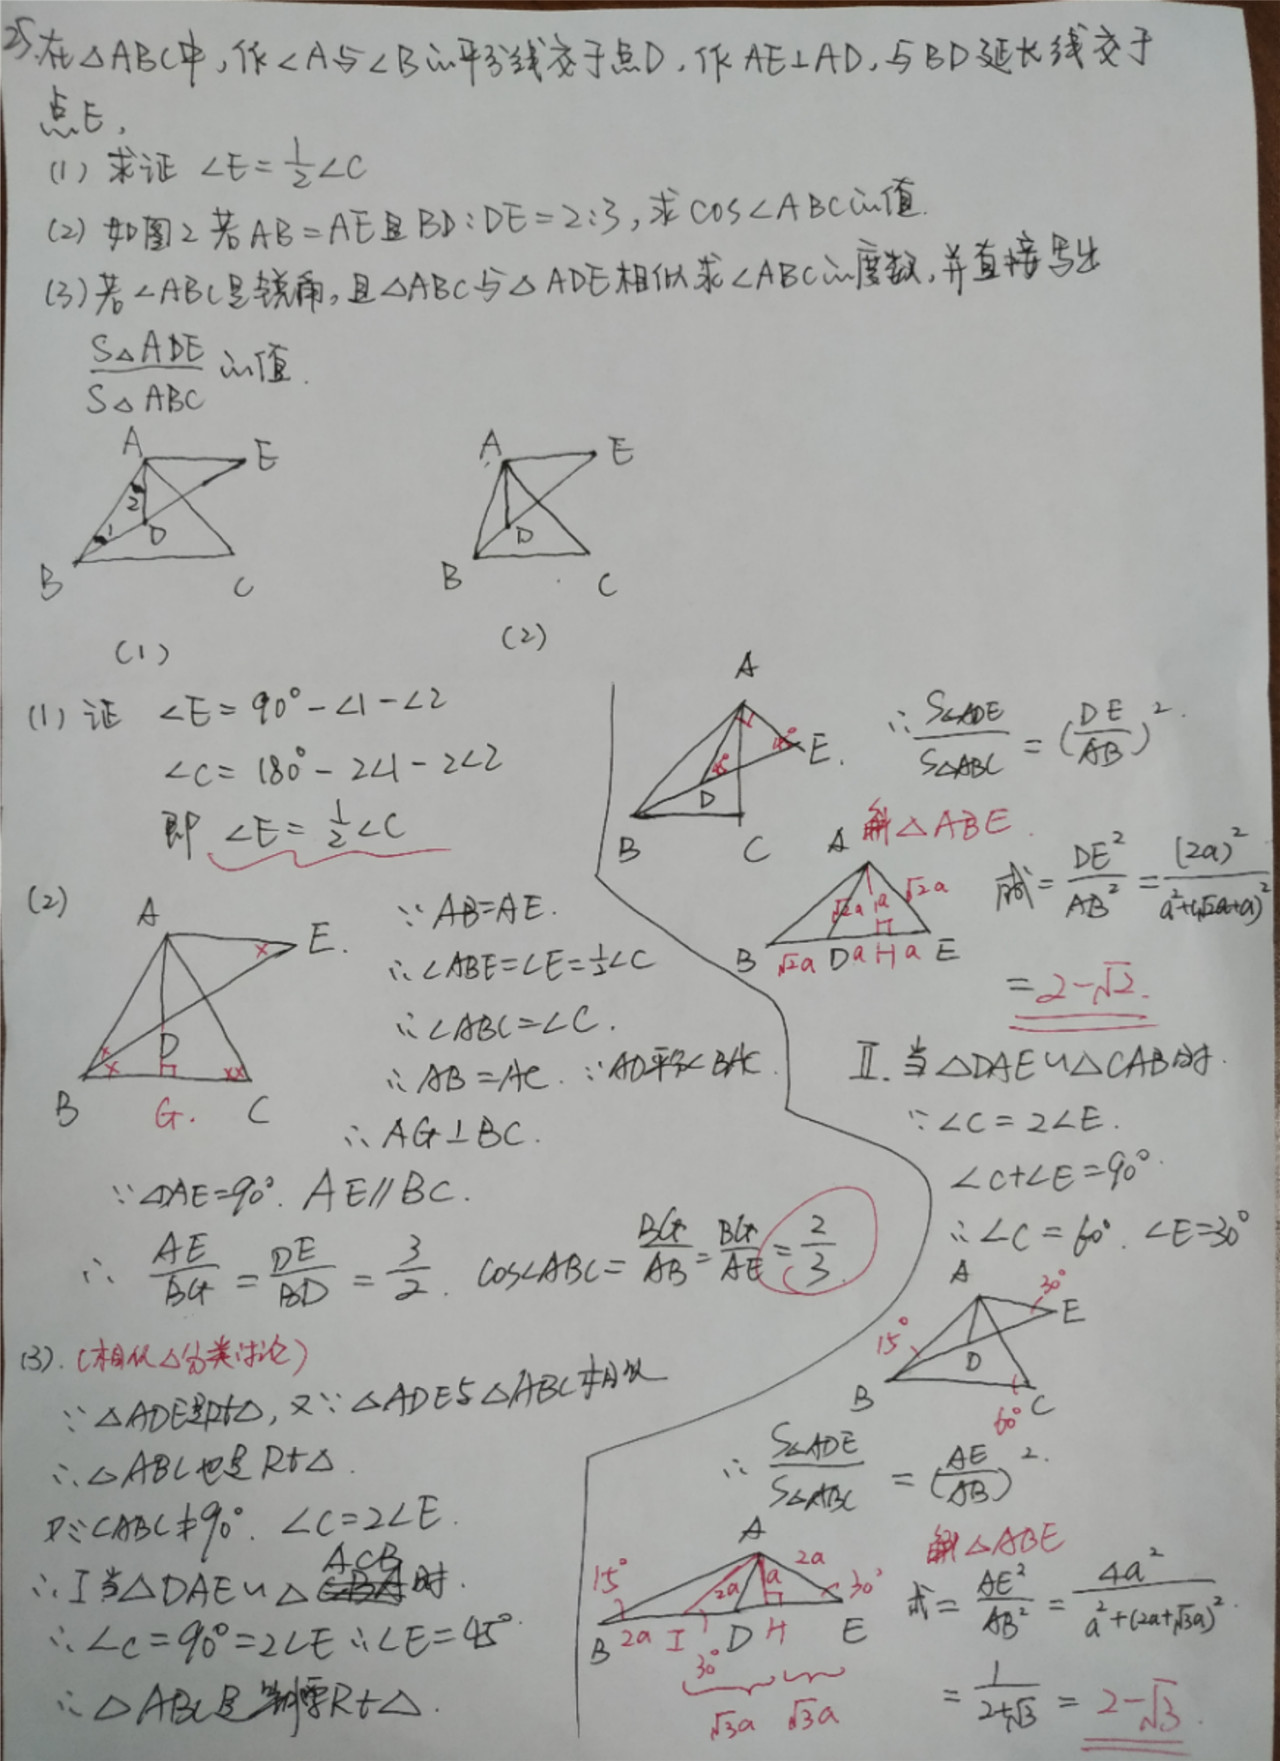 25.在△ABC中,作∠A与∠B的平分线交于点D,作AE⊥AD,与BD延长线交于
点E,
(1)求证 ∠E=1/2∠C
(2)如图2若AB=AE且BD:DE=2:3,求cos∠ABC的值.
(3)若∠ABC是锐角,且△ABC与△ADE相似求∠ABC的度数,并直接写出
S△ADE/S△ABC 的值.
A E 2 1 D B C
(1)
A E D B C
(2)
(1)证 ∠E=90°-∠1-∠2
∠C=180°-2∠1-2∠2
即 ∠E=1/2∠C
(2)
A E. × D × × ×× B G. C
∵AB=AE.
∴∠ABE=∠E=1/2∠C
∴∠ABC=∠C.
∴AB=AC. ∵AD平分∠BAC.
∴AG⊥BC.
∵∠DAE=90°. AE∥BC.
∴ AE/BG=DE/BD=3/2. cos∠ABC=BG/AB=BG/AE=2/3
(3).(相似△分类讨论)
∵△ADE是Rt△,又∵△ADE与△ABC相似
∴△ABC也是Rt△.
又∵∠ABC≠90°. ∠C=2∠E.
∴I当△DAE∽△ACB时.
∴∠C=90°=2∠E ∴∠E=45°
∴△ABC是等腰Rt△.
A 45° E. 45° D B C
∴ S△ADE/S△ABC=(DE/AB)².
解△ABE.
A √2a a √2a B √2a D a H a E
式=DE²/AB²=(2a)²/a²+(√2a+a)²
=2-√2.
II.当△DAE∽△CAB时.
∵∠C=2∠E.
∠C+∠E=90°.
∴∠C=60°. ∠E=30°
A 30° E 15° D B 60° C
∴ S△ADE/S△ABC=(AE/AB)².
解△ABE
A 15° 2a 2a a 30° B 2a I D H E 30° √3a √3a
式=AE²/AB²=4a²/a²+(2a+√3a)².
=1/2+√3=2-√3.